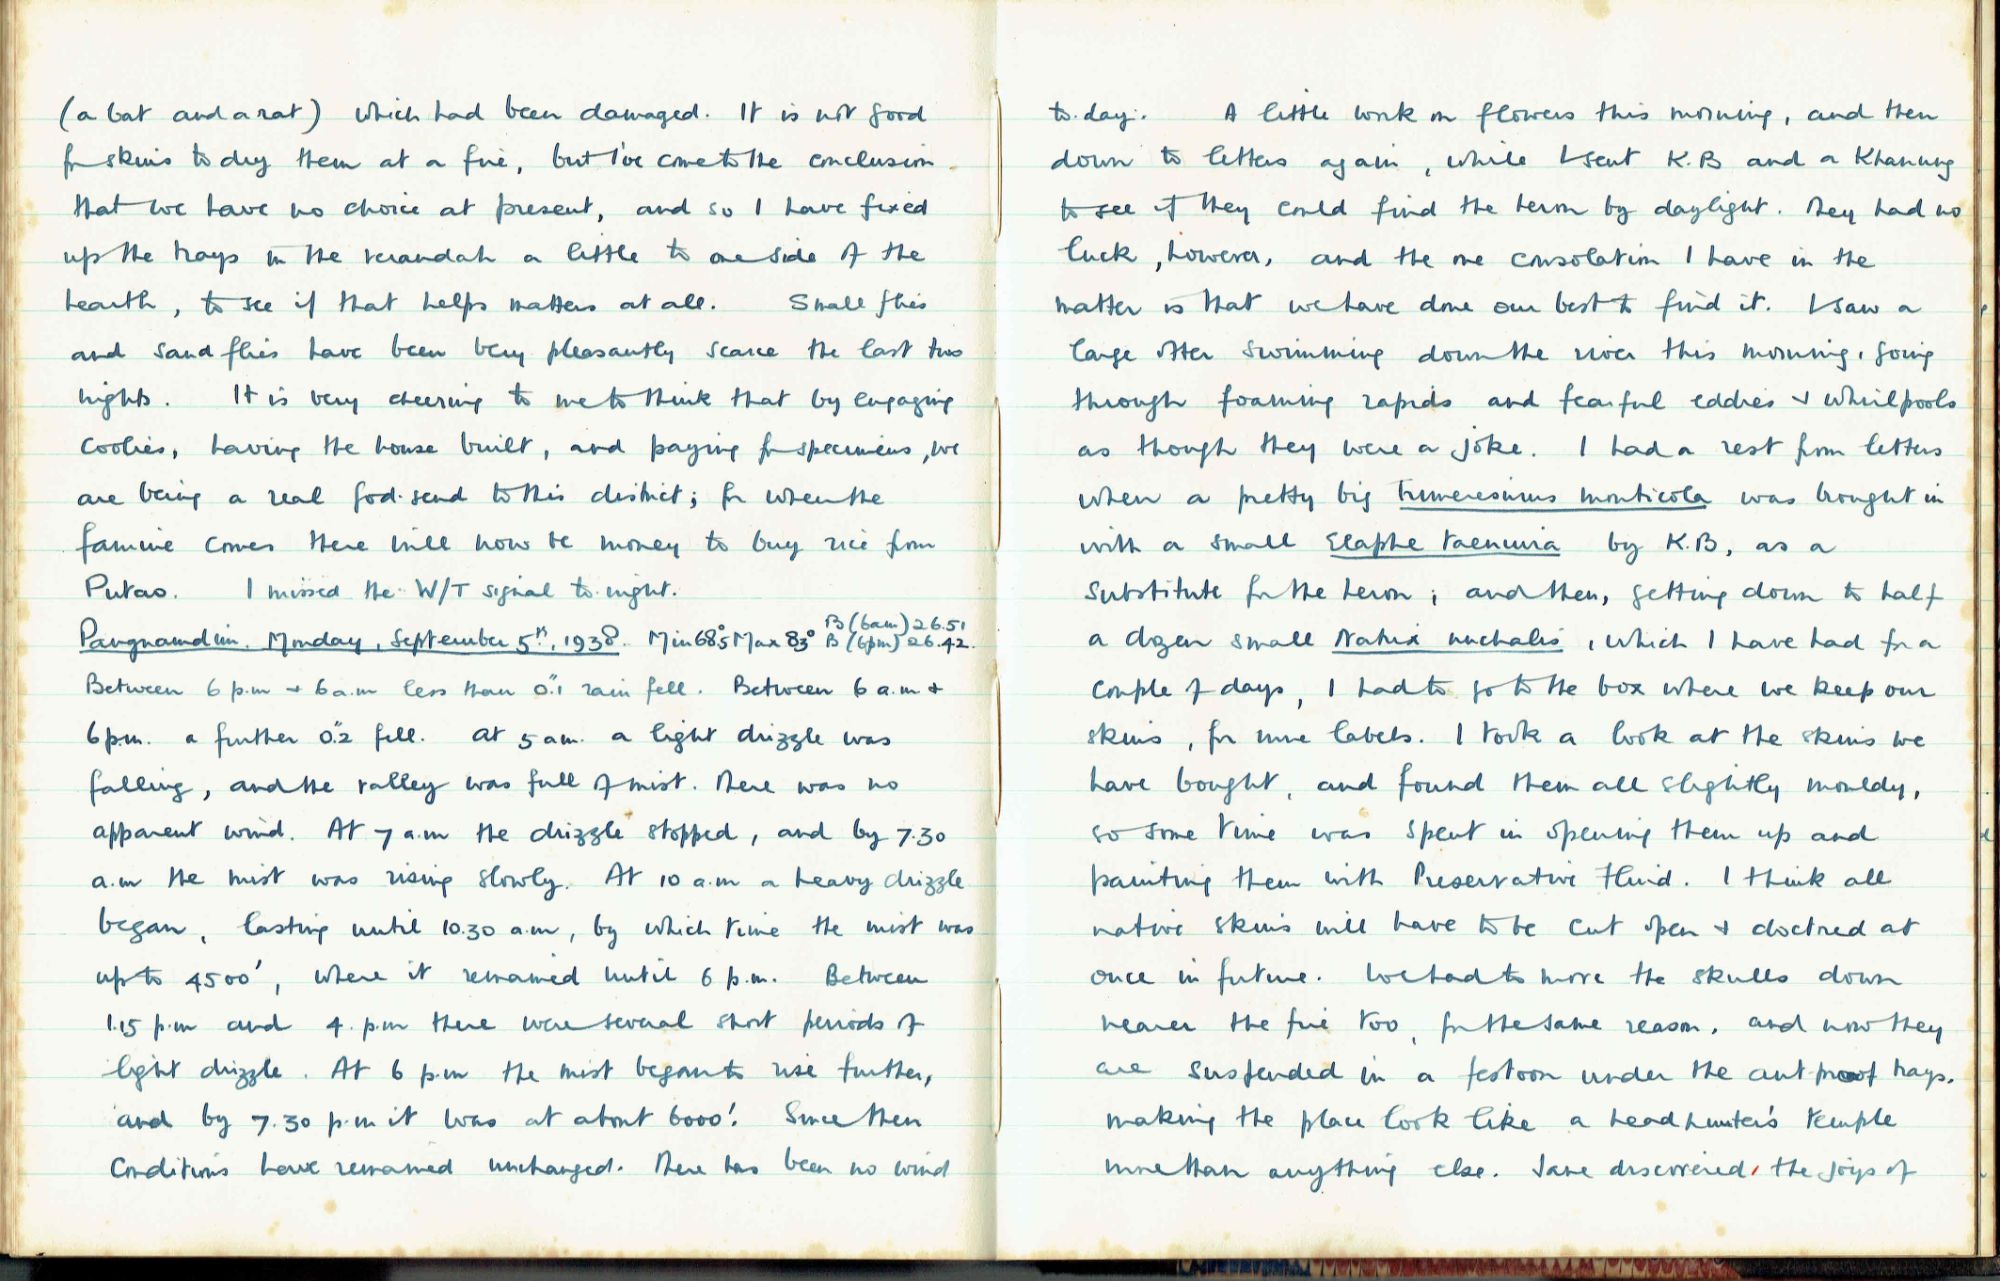 (a bat and a rat) which had been damaged. It is not good
for skins to dry them at a fire, but I've come to the conclusion
that we have no choice at present, and so I have fixed
up the trays in the verandah a little to one side of the
hearth, to see if that helps matters at all. Small flies
and sand flies have been very pleasantly scarce the last two
nights. It is very cheering to me to think that by engaging
coolies, having the house built, and paying for specimens, we
are being a real god-send to this district; for when the
famine comes there will now be money to buy rice from
Putao. I missed the W/T signal to-night.
Pangnamdim. Monday, September 5th, 1938. Min 68°.5 Max 83° B (6am) 26.51 B (6pm) 26.42.
Between 6 p.m + 6 a.m less than 0".1 rain fell. Between 6 a.m +
6 p.m. a further 0".2 fell. At 5 am. a light drizzle was
falling, and the valley was full of mist. There was no
apparent wind. At 7 a.m the drizzle stopped, and by 7.30
a.m the mist was rising slowly. At 10 a.m a heavy drizzle
began, lasting until 10.30 a.m, by which time the mist was
up to 4500', where it remained until 6 p.m. Between
1.15 p.m and 4. p.m there were several short periods of
light drizzle. At 6 p.m the mist began to rise further,
and by 7.30 p.m it was at about 6000'. Since then
conditions have remained unchanged. There has been no wind
to-day. A little work on flowers this morning, and then
down to letters again, while I sent K.B and a Khanung
to see if they could find the heron by daylight. They had no
luck, however, and the one consolation I have in the
matter is that we have done our best to find it. I saw a
large otter swimming down the river this morning, going
through foaming rapids and fearful eddies + whirlpools
as though they were a joke. I had a rest from letters
when a pretty big Trimeresurus monticola was brought in
with a small Elaphe taeniura by K.B, as a
substitute for the heron; and then, getting down to half
a dozen small Natrix nuchalis, which I have had for a
couple of days, I had to go to the box where we keep our
skins, for more labels. I took a look at the skins we
have bought, and found them all slightly mouldy,
so some time was spent in opening them up and
painting them with Preservative Fluid. I think all
native skins will have to be cut open + doctored at
once in future. We had to move the skulls down
nearer the fire too, for the same reason, and now they
are suspended in a festoon under the ant-proof trays,
making the place look like a headhunter's temple
more than anything else. Jane discovered the joys of